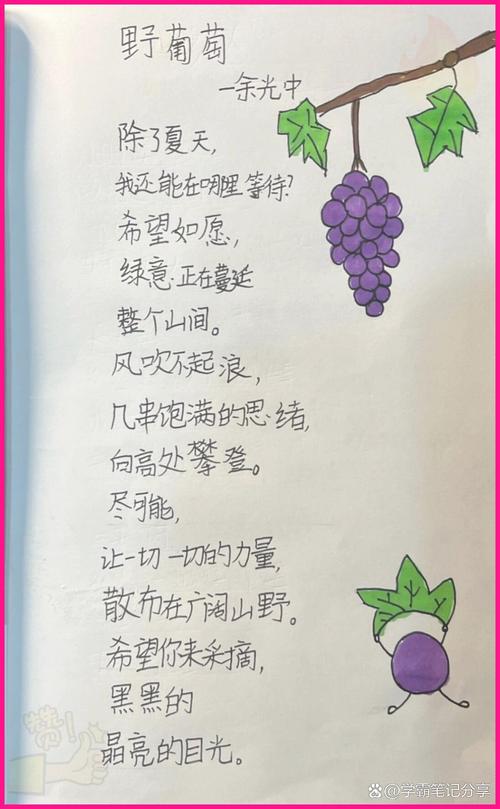 野葡萄
—余光中
除了夏天,
我还能在哪里等待?
希望如愿,
绿意正在蔓延
整个山间。
风吹不起浪,
几串饱满的思绪,
向高处攀登。
尽可能,
让一切一切的力量,
散布在广阔山野。
希望你来采摘,
黑黑的
晶亮的目光。
赞!
学霸笔记分享